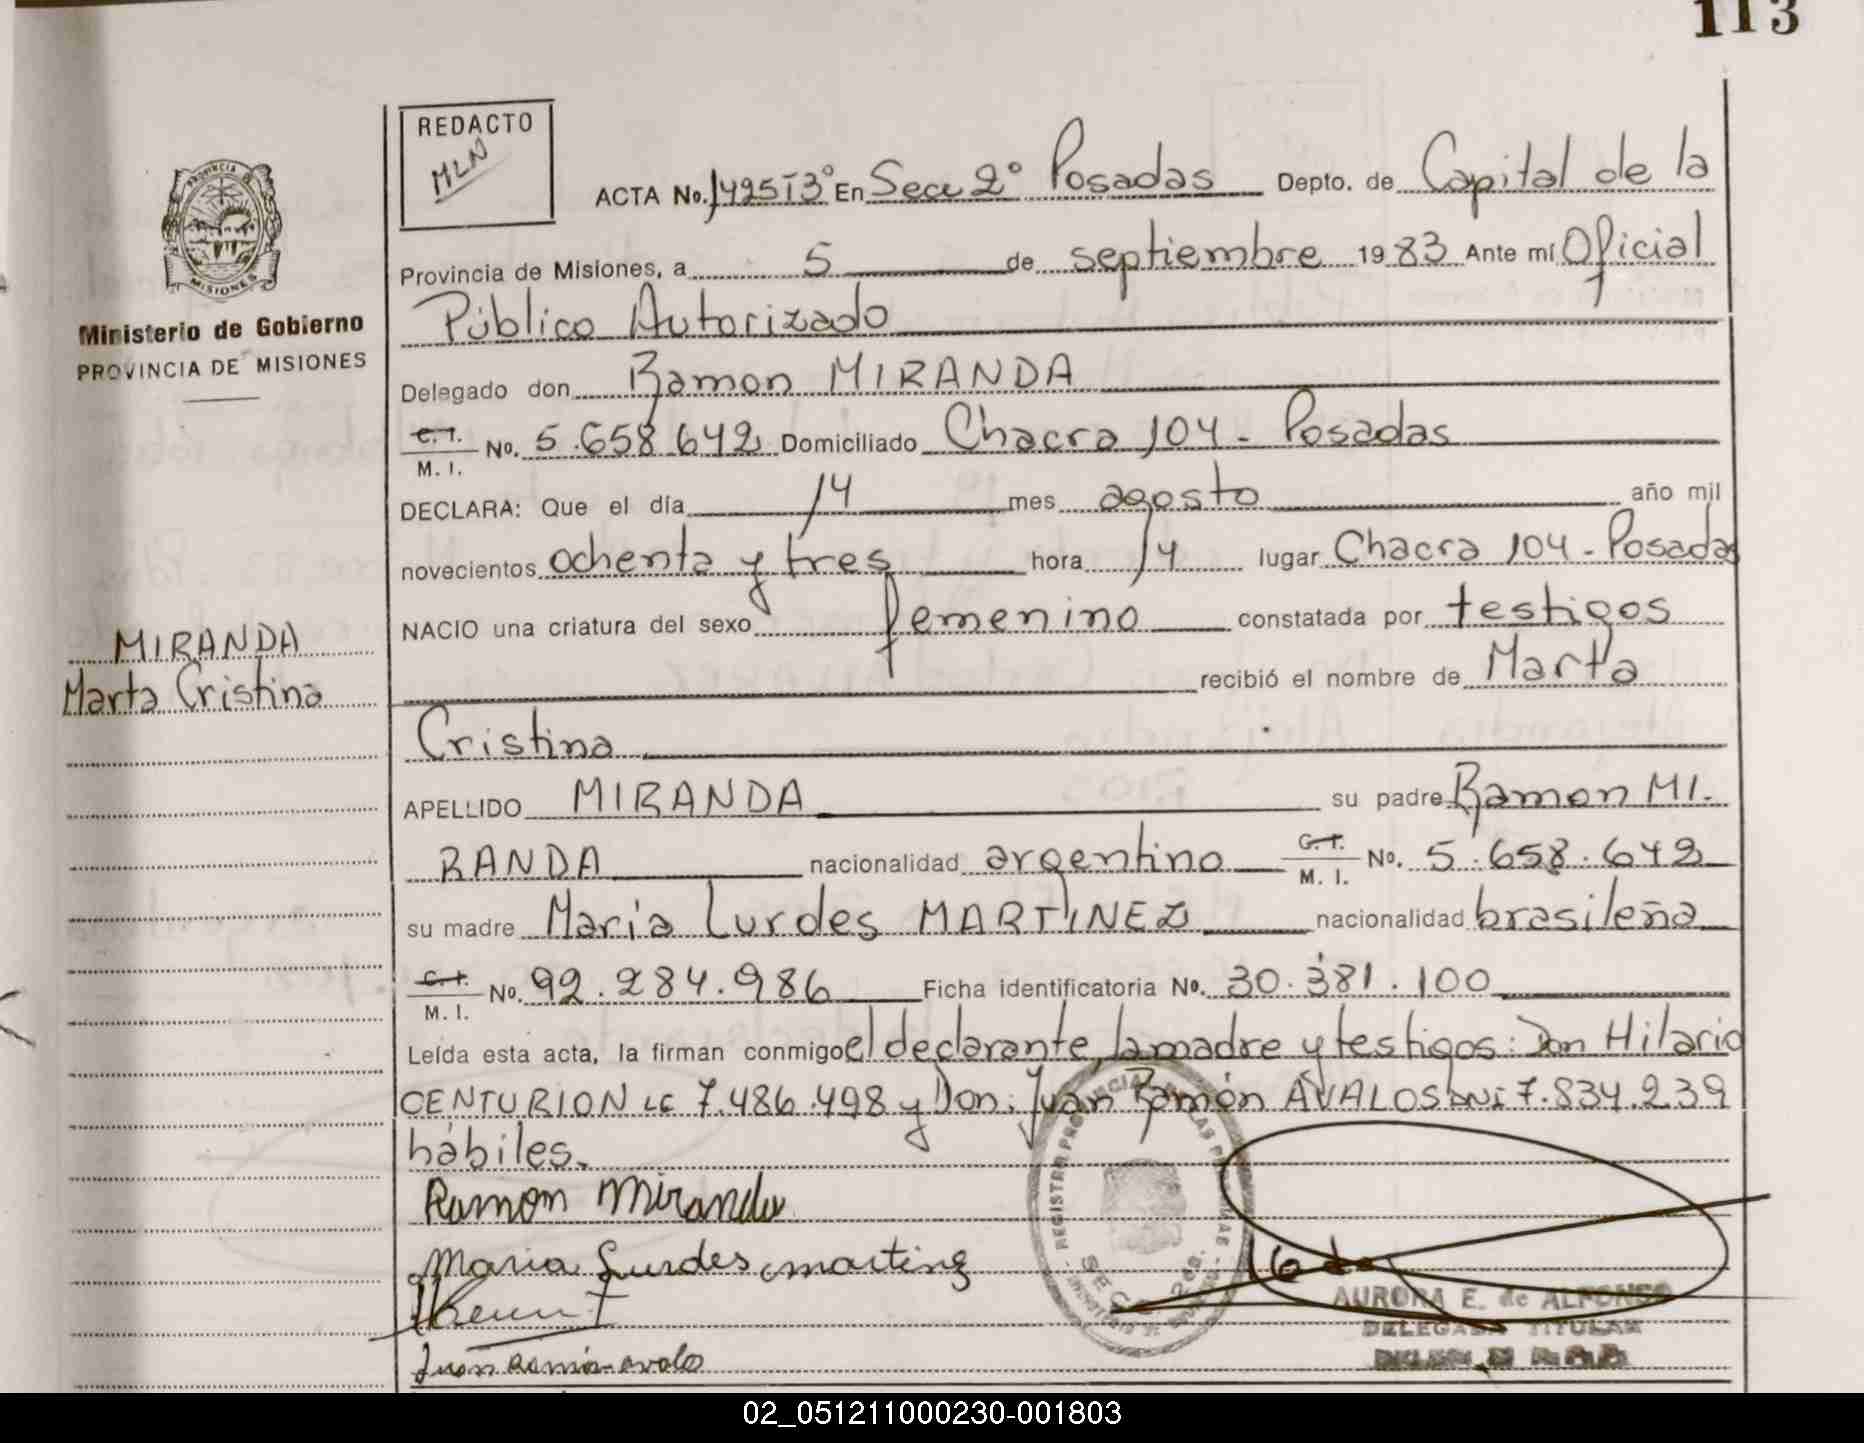 113
REDACTO
MLN
ACTA No. 1425 T3° En Secc 2° Posadas Depto. de Capital de la
Provincia de Misiones, a 5 de septiembre 1983 Ante mí Oficial
Público Autorizado
PROVINCIA DE
MISIONES
Ministerio de Gobierno
PROVINCIA DE MISIONES
Delegado don Ramon MIRANDA
C. I.
M. I. No. 5.658.642 Domiciliado Chacra 104 - Posadas
DECLARA: Que el día 14 mes agosto año mil
novecientos ochenta y tres hora 14 lugar Chacra 104 - Posadas
NACIO una criatura del sexo femenino constatada por testigos
MIRANDA
Marta Cristina
recibió el nombre de Marta
Cristina
APELLIDO MIRANDA su padre Ramon MI-
RANDA nacionalidad argentino C. I. M. I. No. 5.658.642
su madre Maria Lurdes MARTINEZ nacionalidad brasileña
C. I.
M. I. No. 92.284.986 Ficha identificatoria No. 30.381.100
Leída esta acta, la firman conmigo el declarante, la madre y testigos: Don Hilario
CENTURION LE 7.486.498 y Don: Juan Ramón AVALOS DNI 7.834.239
hábiles.
Ramon Miranda
Maria Lurdes martinz
Juan Ramón avalo
REGISTRO PROVINCIAL DE LAS PERSONAS
AURORA E. de ALFONSO
DELEGADA TITULAR
02_051211000230-001803